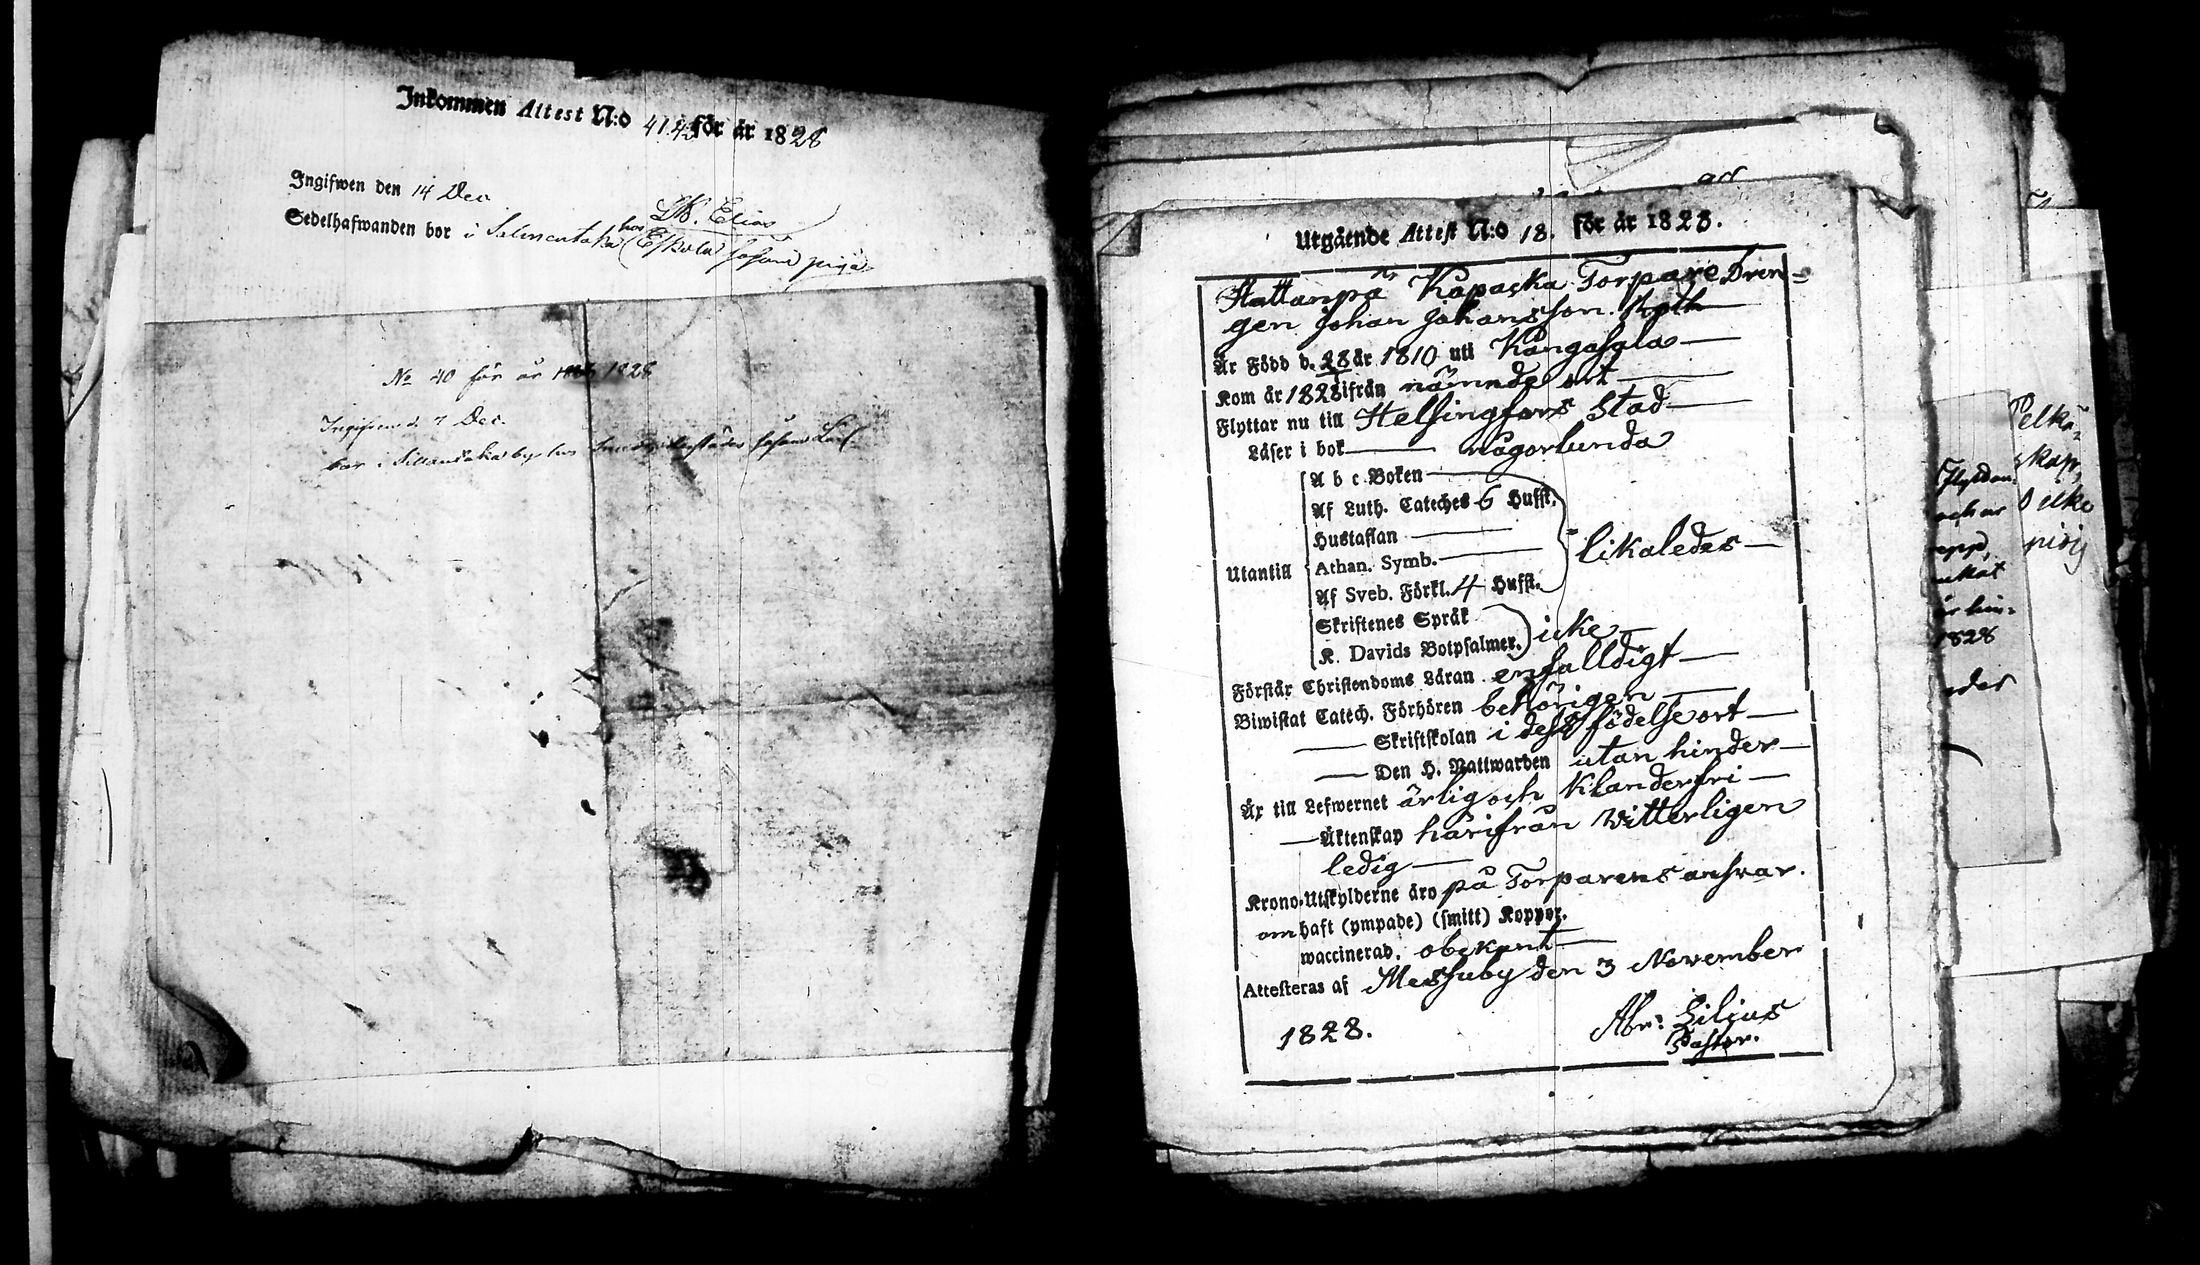 Inkommen Attest N:o 41.42 för år 1828
Ingifwen den 14 Dec
Sedelhafwanden bor i hos Elias
såsom piga
No 40 för år 1828
Ingifven d. 7 Dec.
bor i by hos såsom
Utgående Attest N:o 18. för år 1828.
Kapaska Torpare Dren-
gen Johan Johansson
Är Född d. 28 år 1810 uti Kangasala
Kom år 1828 ifrån nämnde ort
Flyttar nu till Helsingfors Stad
Läser i bok någorlunda
A b c Boken
Af Luth. Cateches 6 Hufst.
Hustaflan
Utantill Athan. Symb. likaledes
Af Sveb. Förkl. 4 Hufst.
Skriftenes Språk
K. Davids Botpsalmer. icke
Förstår Christendoms Läran enfalldigt
Biwistat Catech. Förhören behörigen
Skriftskolan i dess födelseort
Den H. Nattwarden utan hinder
Är till Lefwernet ärlig och klanderfri
Äktenskap härifrån witterligen
ledig
Krono-Utskylderne äro på Torparens answar.
om haft (ympade) (smitt) Koppor.
waccinerad. obekant
Attesteras af Messuby den 3 November
1828. Abr: Lilius
Pastor.
Pelkä-
1828